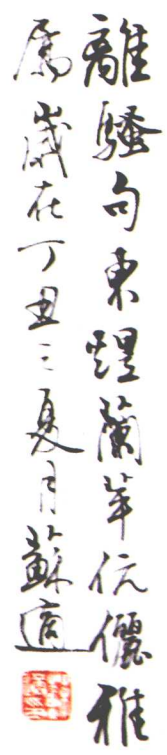 離騷句東煌蘭苹伉儷雅
屬歲在丁丑之夏月蘇適